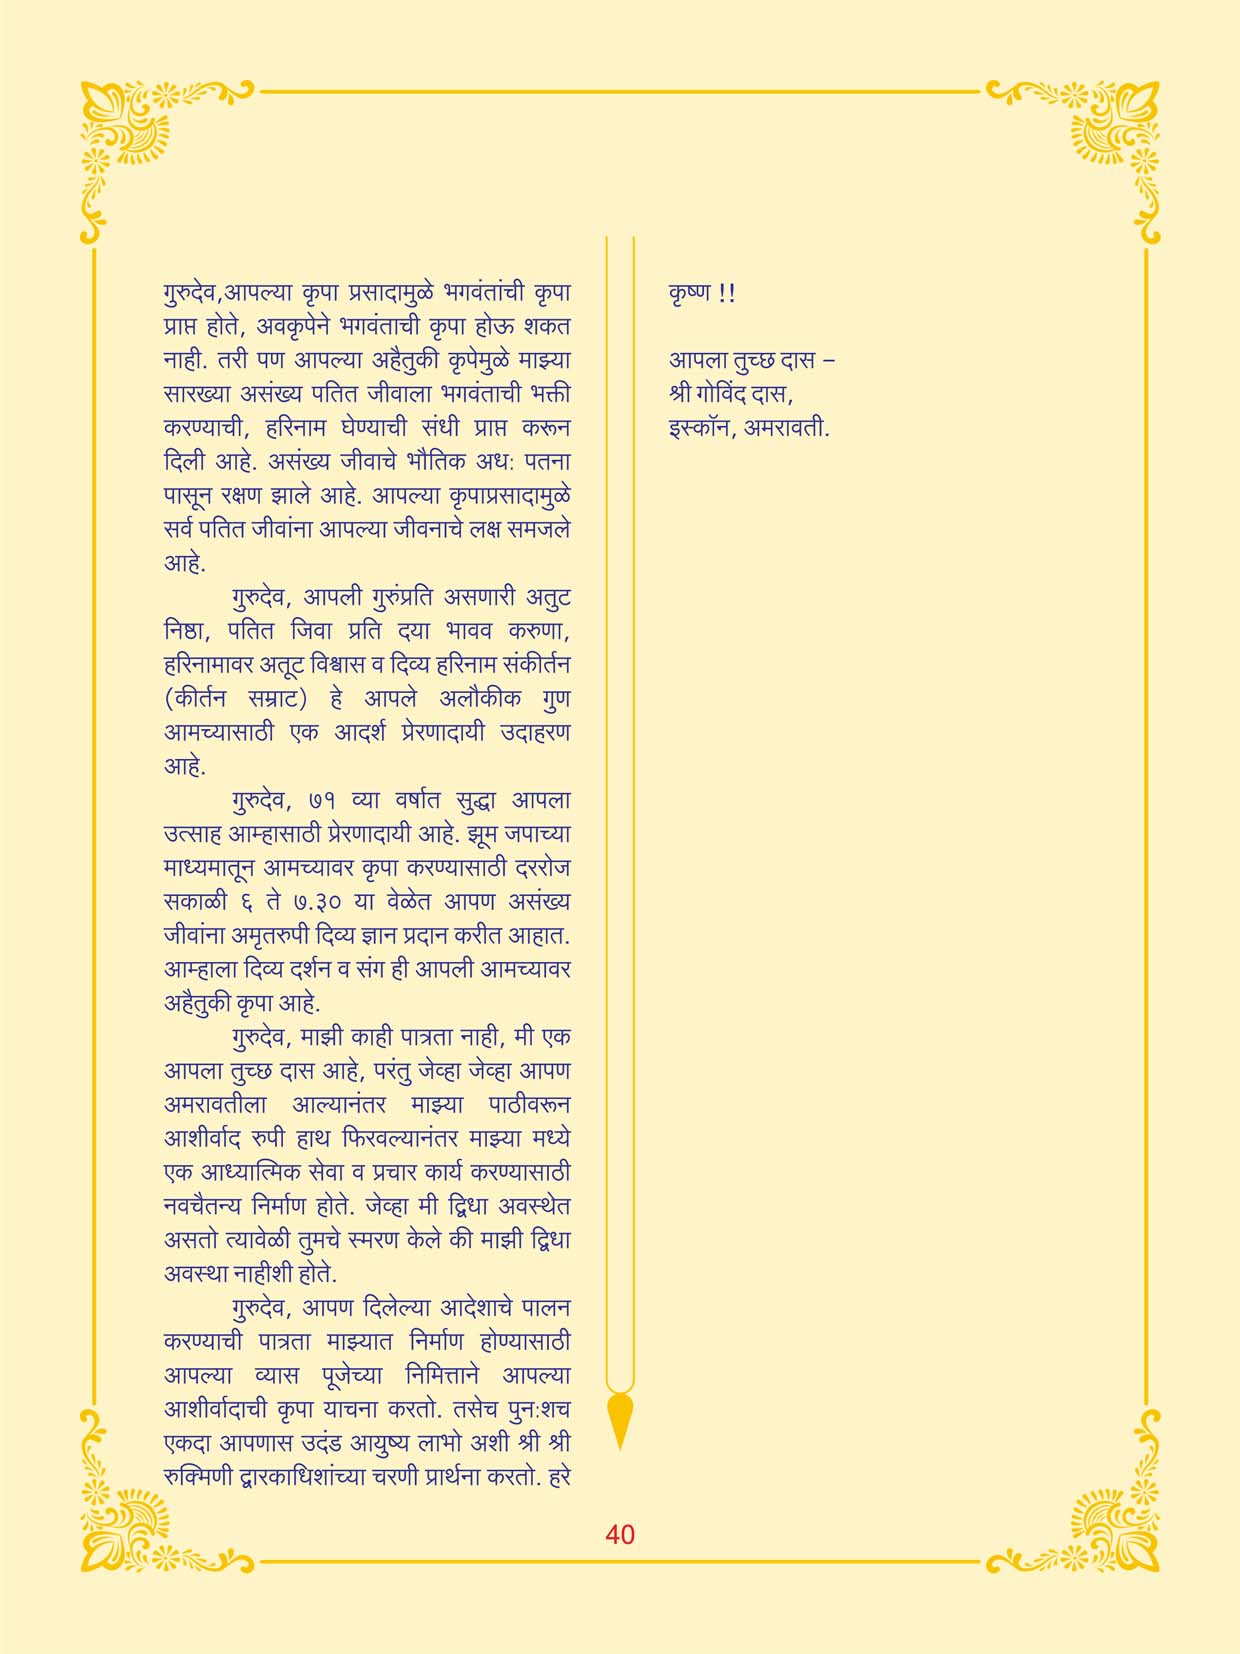 गुरुदेव,आपल्या कृपा प्रसादामुळे भगवंतांची कृपा
प्राप्त होते, अवकृपेने भगवंताची कृपा होऊ शकत
नाही. तरी पण आपल्या अहैतुकी कृपेमुळे माझ्या
सारख्या असंख्य पतित जीवाला भगवंताची भक्ती
करण्याची, हरिनाम घेण्याची संधी प्राप्त करून
दिली आहे. असंख्य जीवाचे भौतिक अधः पतना
पासून रक्षण झाले आहे. आपल्या कृपाप्रसादामुळे
सर्व पतित जीवांना आपल्या जीवनाचे लक्ष समजले
आहे.
गुरुदेव, आपली गुरुंप्रति असणारी अतुट
निष्ठा, पतित जिवा प्रति दया भावव करुणा,
हरिनामावर अतूट विश्वास व दिव्य हरिनाम संकीर्तन
(कीर्तन सम्राट) हे आपले अलौकीक गुण
आमच्यासाठी एक आदर्श प्रेरणादायी उदाहरण
आहे.
गुरुदेव, ७१ व्या वर्षात सुद्धा आपला
उत्साह आम्हासाठी प्रेरणादायी आहे. झूम जपाच्या
माध्यमातून आमच्यावर कृपा करण्यासाठी दररोज
सकाळी ६ ते ७.३० या वेळेत आपण असंख्य
जीवांना अमृतरुपी दिव्य ज्ञान प्रदान करीत आहात.
आम्हाला दिव्य दर्शन व संग ही आपली आमच्यावर
अहैतुकी कृपा आहे.
गुरुदेव, माझी काही पात्रता नाही, मी एक
आपला तुच्छ दास आहे, परंतु जेव्हा जेव्हा आपण
अमरावतीला आल्यानंतर माझ्या पाठीवरून
आशीर्वाद रुपी हाथ फिरवल्यानंतर माझ्या मध्ये
एक आध्यात्मिक सेवा व प्रचार कार्य करण्यासाठी
नवचैतन्य निर्माण होते. जेव्हा मी द्विधा अवस्थेत
असतो त्यावेळी तुमचे स्मरण केले की माझी द्विधा
अवस्था नाहीशी होते.
गुरुदेव, आपण दिलेल्या आदेशाचे पालन
करण्याची पात्रता माझ्यात निर्माण होण्यासाठी
आपल्या व्यास पूजेच्या निमित्ताने आपल्या
आशीर्वादाची कृपा याचना करतो. तसेच पुनःशच
एकदा आपणास उदंड आयुष्य लाभो अशी श्री श्री
रुक्मिणी द्वारकाधिशांच्या चरणी प्रार्थना करतो. हरे
कृष्ण !!
आपला तुच्छ दास –
श्री गोविंद दास,
इस्कॉन, अमरावती.
40